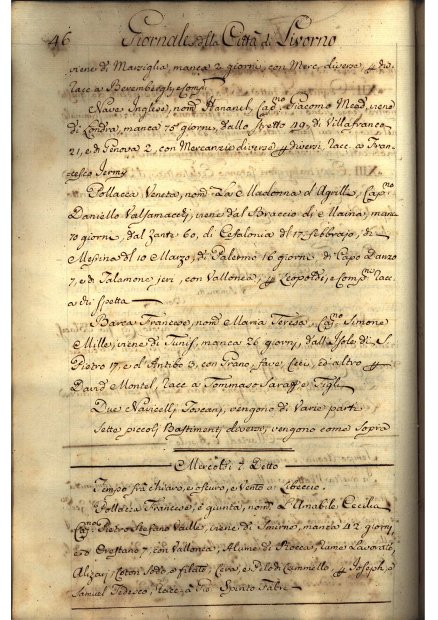 46 Giornale della Città di Livorno
viene di Marsiglia, manca 2 giorni, con Merc. diverse, p d.o
race a Berembergh, e Comp.
Nave Inglese, nom. Hananel, Cap.no Giacomo Mead, viene
di Londra, manca 75 giorni, dallo Stretto 49, di Villafranca
21, e di Genova 2, con Mercanzie diverse p diversi, racc. a Fran-
cesco Jermy
Pollacca Veneta, nom. La Madonna d'Agrilli, Cap.no
Daniello Valsamacchi, viene dal Braccio di Maina, manca
70 giorni, dal Zante 60, di Cefalonia dl 17 febbrajo, di
Messina dl 10 Marzo, di Palermo 16 giorni, di Capo Danzo
7, e di Talamone jeri, con Vallonea, p Leopoldo, e Comp.ni racc.
a chi spetta
Barca Francese, nom. Maria Teresa, Cap.no Simone
Mille, viene di Tunis, manca 26 giorni, dall'Isole di S.
Pietro 17, e d'Antibo 3, con Grano, fave, Ceci, ed altro p
David Montel, race a Tommaso Saraff e Figli
Due Navicelli Toscani, vengono di Varie parti
Sette piccoli Bastimenti diversi, vengono come sopra
Mercoldì 2 Detto
Tempo frà chiaro, e oscuro, e Vento a Libeccio
Pollacca Francese, è giunta, nom. L'Amabile Cecilia
Cap.no Pietro Stefano Valle, viene di Smirne, manca 42 giorni,
e da Orestano 7, con Vallonea, Alume di Rocca, Lane Lavorate,
Alizari, Coton Sodo e filato, Cera, e Pelo di Cammello, p Joseph, e
Samuel Tedesco, race: a Gio Spirito Fabre